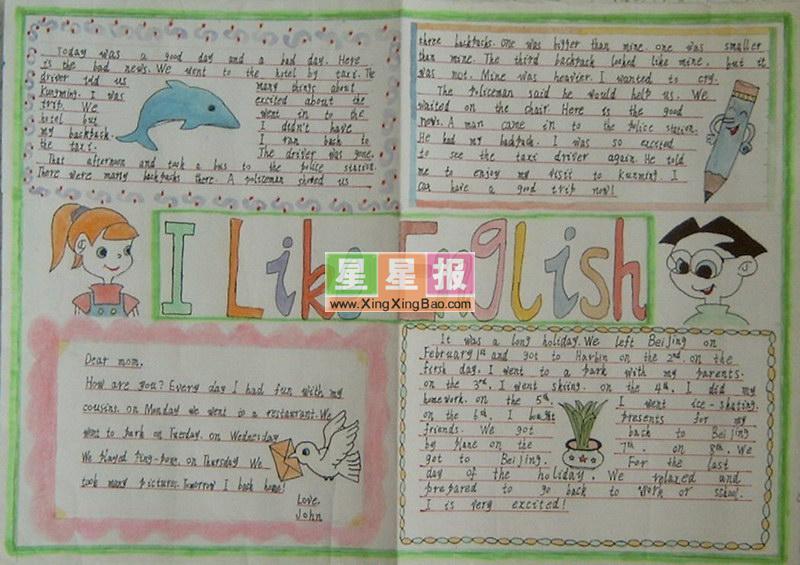 Today was a good day and a bad day. Here
is the bad news. We went to the hotel by taxi. The
driver told us many things about
Kunming. I was excited about the
trip. We went in to the
hotel but I didn't have
my backpack. I ran back to
the taxi. The driver was gone.
That afternoon and took a bus to the police station.
There were many backpacks there. A policeman showed us
three backpacks. One was bigger than mine. one was smaller
than mine. The third backpack looked like mine, but it
was not. Mine was heavier. I wanted to cry.
The policeman said he would help us. We
waited on the chair. Here is the good
news. A man came in to the police station.
He had my backpack. I was so excited
to see the taxi driver again. He told
me to enjoy my visit to Kunming. I
can have a good trip now!
I Like English
星星报
www.XingXingBao.com
Dear mom,
How are you? Every day I had fun with my
cousins. on Monday we went to a restaurant. We
went to park on Tuesday. on Wednesday
We played Ping-pong. on Thursday We
took many pictures. Tomorrow I back home!
Love,
John
It was a long holiday. We left Beijing on
February 1st and got to Harbin on the 2nd. on the
first day, I went to a park with my parents.
on the 3rd, I went skiing. on the 4th, I did my
homework. on the 5th, I went ice-skating.
on the 6th, I bought presents for my
friends. We got back to Beijing
by plane on the 7th. on 8th, We
got to Beijing. For the last
day of the holiday, We relaxed and
prepared to go back to work or school.
I is very excited!